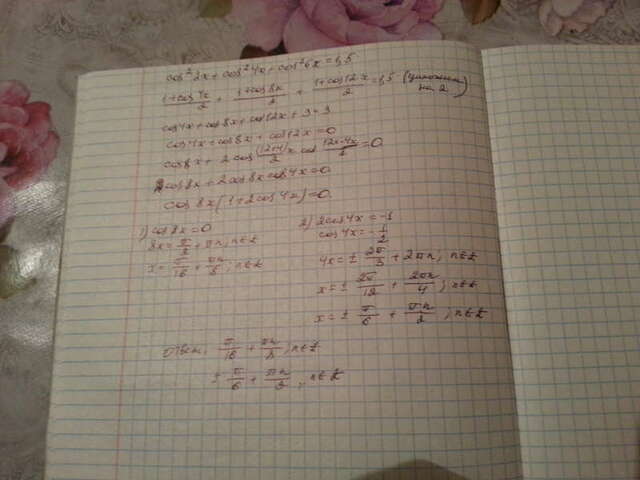 cos²2x + cos²4x + cos²6x = 1,5
(1+cos4x)/2 + (1+cos8x)/2 + (1+cos12x)/2 = 1,5 (умножаем на 2)
cos4x + cos8x + cos12x + 3 = 3
cos4x + cos8x + cos12x = 0
cos8x + 2cos (12+4)/2 x cos (12x-4x)/2 = 0
cos8x + 2cos8x cos4x = 0
cos8x(1+2cos4x) = 0
1) cos8x = 0
8x = π/2 + πn; n∈Z
x = π/16 + πn/8; n∈Z
2) 2cos4x = -1
cos4x = -1/2
4x = ± 2π/3 + 2πn; n∈Z
x = ± 2π/12 + 2πn/4; n∈Z
x = ± π/6 + πn/2; n∈Z
Ответ: π/16 + πn/8; n∈Z
± π/6 + πn/2; n∈Z